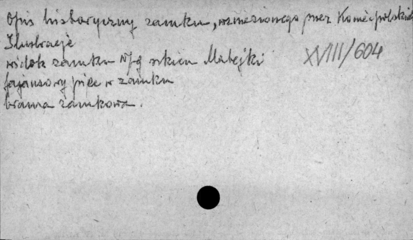 Opis historyczny zamku, wzniesionego przez Koniecpolskich
Ilustracje
widok zamku wg szkicu Matejki XVIII/604
fajansowy piec w zamku
brama zamkowa.